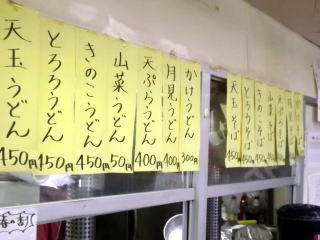 かけうどん 300円
月見うどん 400円
天ぷらうどん 400円
山菜うどん 450円
きのこうどん 450円
とろろうどん 450円
天玉うどん 450円
山菜そば
きのこそば 450円
とろろそば 450円
天玉そば 450円